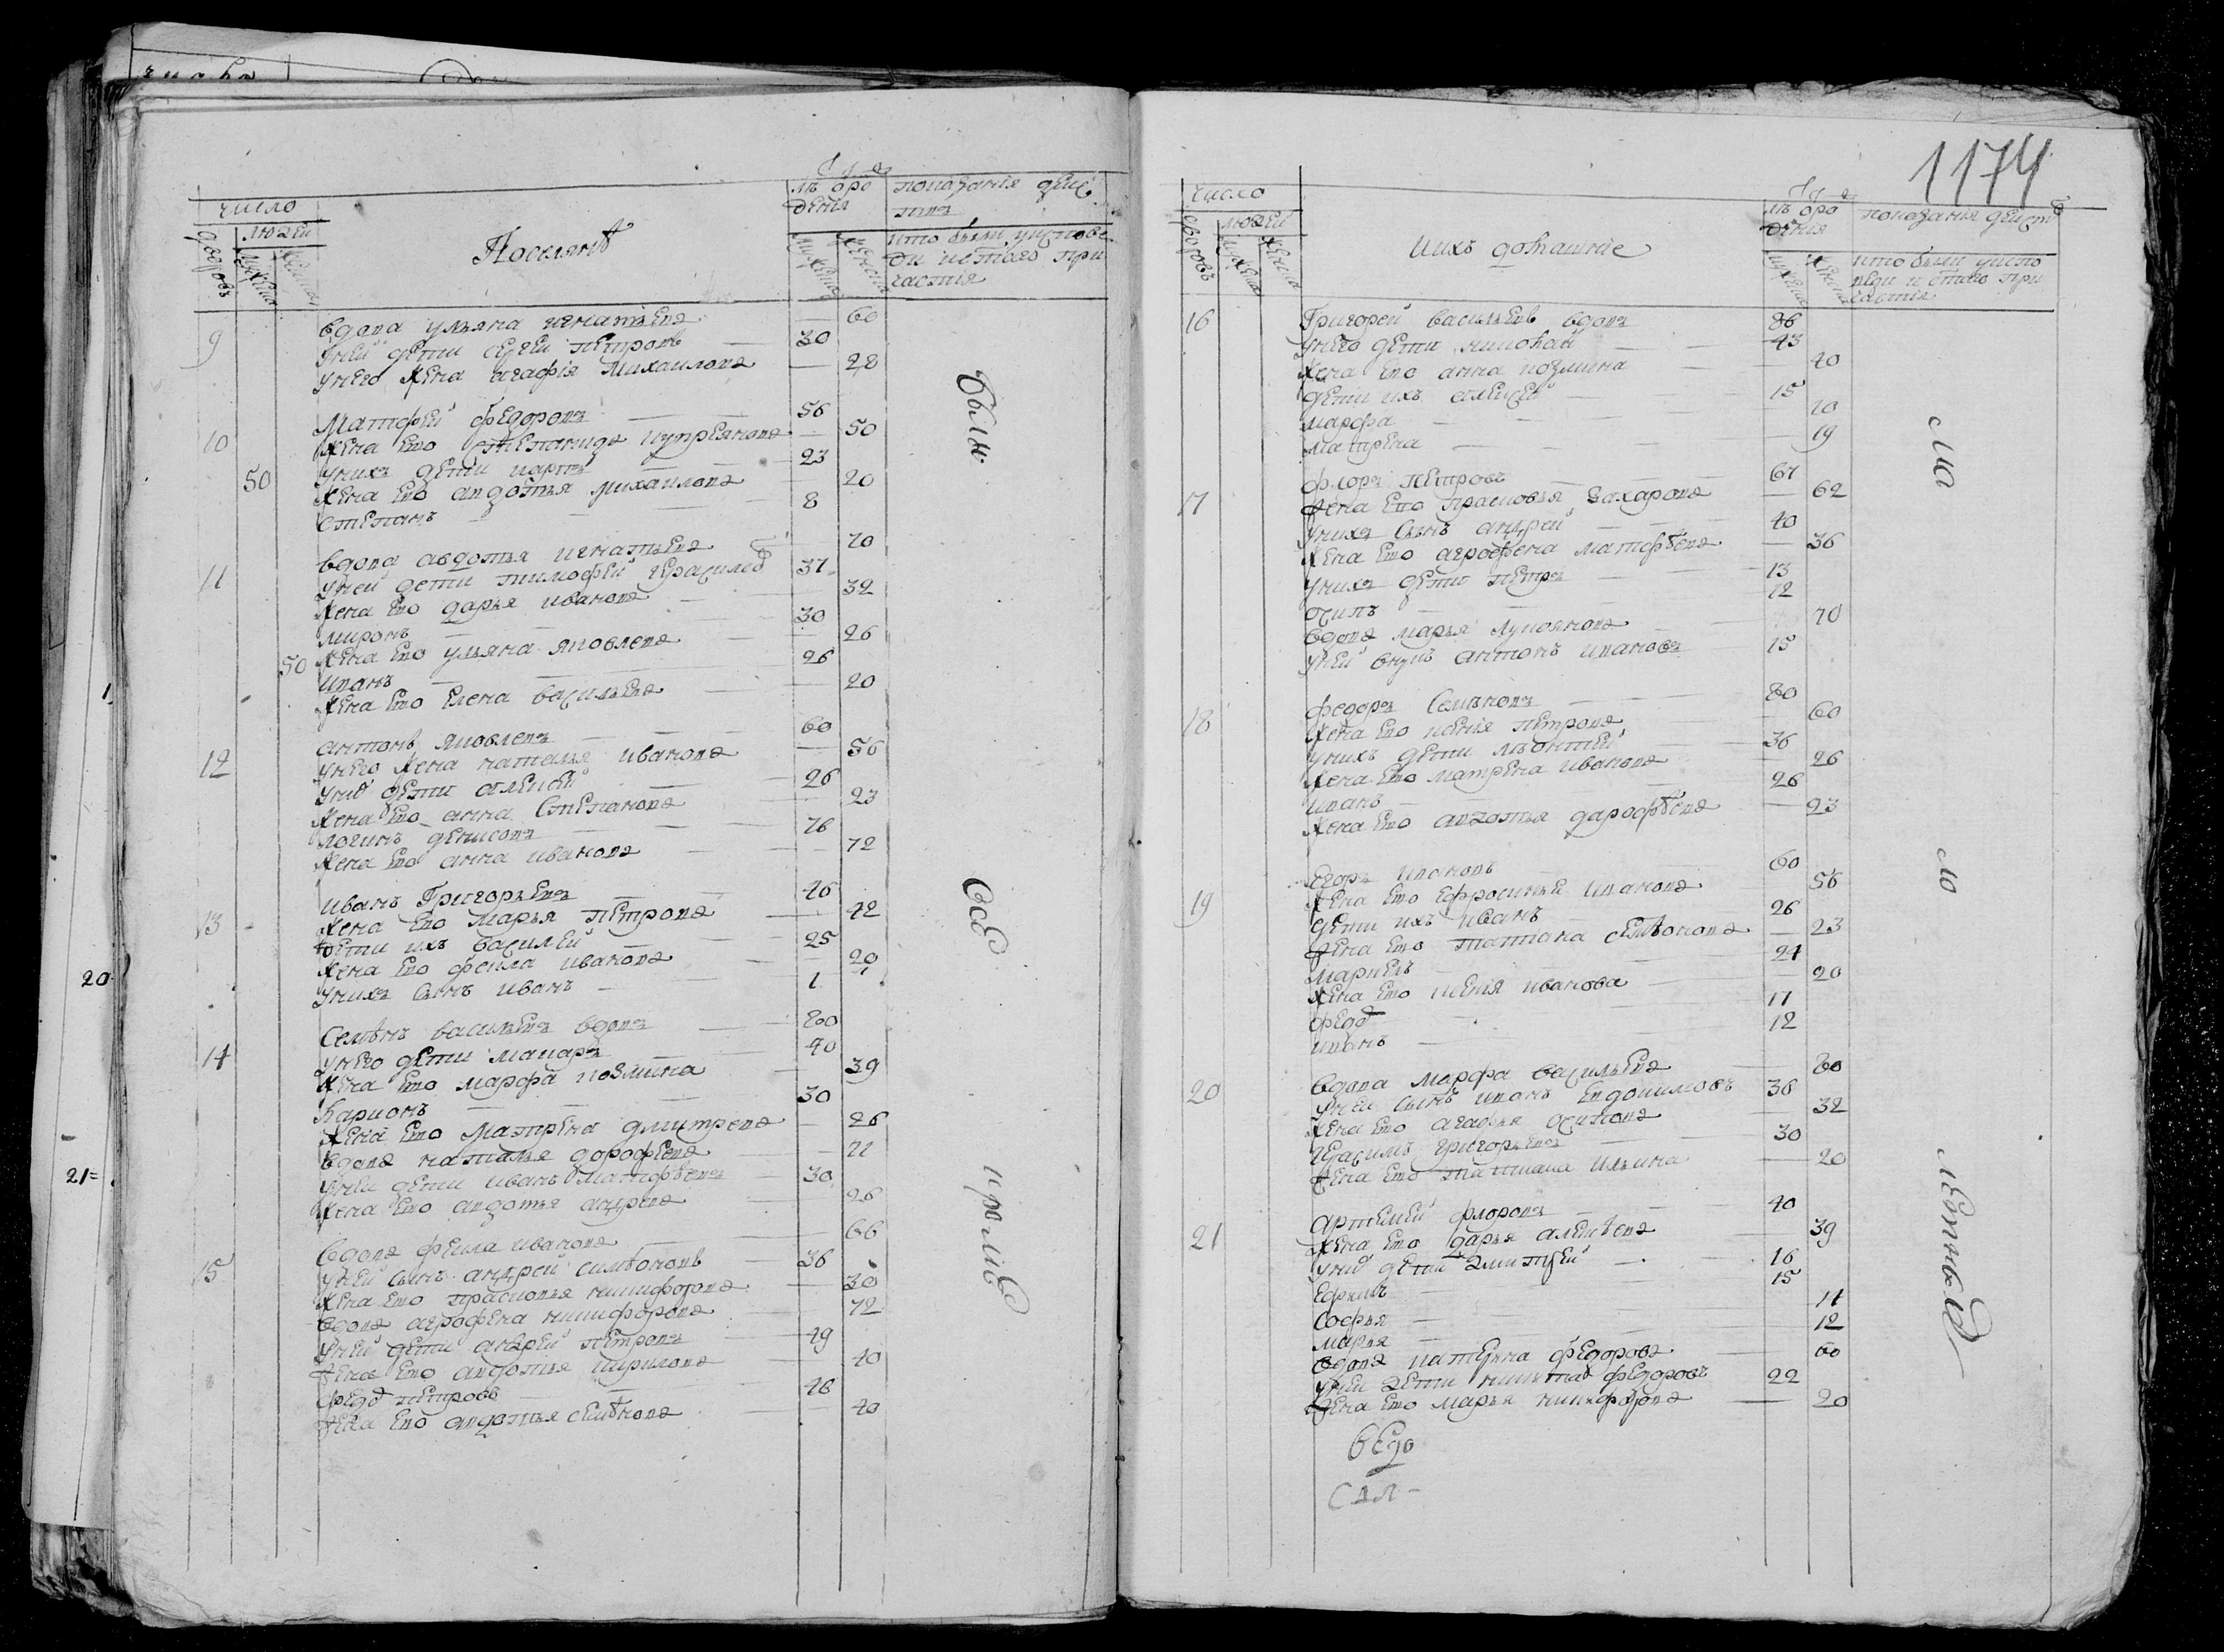 число
дворовъ
людей
мужеска
женска
Поселянъ
Года
лѣ ѿро
дения
показания дейс
твъ
кто были у испове
ди и с̃таго при
частия
9 вдова ульяна игнатьева 60
у ней дети сергей петровъ 30
у него жена агафія михаилова 28
10 Матфей федоровъ 56
жена его степанида купреянова 50
у нихъ дети карпъ 23
50
жена его авдотья михаилова 20
степанъ 8
11 вдова авдотья игнатьева 70
у ней дети тимофей герасимо 37
жена его дарья иванова 32
миронъ 30
50
жена его ульяна яковлева 26
иванъ 26
жена его елена васильева 20
12 антонъ яковлевъ 60
у него жена наталья иванова 56
у них дети алексей 26
жена его анна степанова 23
логинъ денисовъ 76
жена его анна иванова 72
13 иванъ Григорьевъ 46
жена его марья петрова 42
дети ихъ василей 25
жена его фекла иванова 20
у нихъ сынъ иванъ 1
14 семенъ васильевъ вдовъ 80
у него дети макаръ 40
жена его марфа козмина 39
Карионъ 30
жена его матрена дмитрева 26
вдова наталья дорофеева 71
у ней дети иванъ матфѣевъ 30
жена его авдотья андрева 26
15 вдова фекла иванова 66
у ней сынъ андрей симѣоновъ 36
жена его прасковья никифорова 30
вдова агрофена никифорова 72
у ней дети андрей петровъ 49
жена его авдотья кирилова 40
федо петровъ 46
жена его авдотья семѣнова 40
были
Ѿсѣ
кромѣ
1174
число
дворовъ
людей
мужеска
женска
и ихъ домашние
Года
лѣ ѿро
дения
показания дейст
в
кто были у испо
веди и с̃таго при
частия
16 Григорей васильевъ вдовъ 86
у него дети николай 43
жена его анна козмина 40
дети ихъ алексей 15
марфа 20
матрена 19
17 флоръ петровъ 67
жена его прасковья захарова 62
у нихъ сынъ андрей 40
жена его агрофена матфѣева 36
у нихъ дети петръ 13
осипъ 12
вдова марья лукоянова 70
у ней внукъ антонъ ивановъ 15
18 федоръ семѣновъ 80
жена его ксенія петрова 60
у нихъ дети леонтей 36
жена его матрена иванова 26
иванъ 26
жена его авдотья дарофѣева 23
19 егоръ ивановъ 60
жена его ефросинья иванова 56
дети ихъ иванъ 26
жена его татиана семѣонова 23
маркелъ 21
жена его ксенія иванова 20
федо 17
иванъ 12
20 вдова марфа васильева 80
у ней сынъ иванъ евдокимовъ 38
жена его агафья осипова 32
герасимъ григорьевъ 30
жена его татиана ильина 20
21 артемей флоровъ 40
жена его дарья алексѣева 39
у них дети дмитрей 16
ефимъ 15
софья 14
марья 12
вдова катерина федорова 60
у ней дети никита федоровъ 22
жена его марья никифорова 20
ма
ло
летных
20
21=